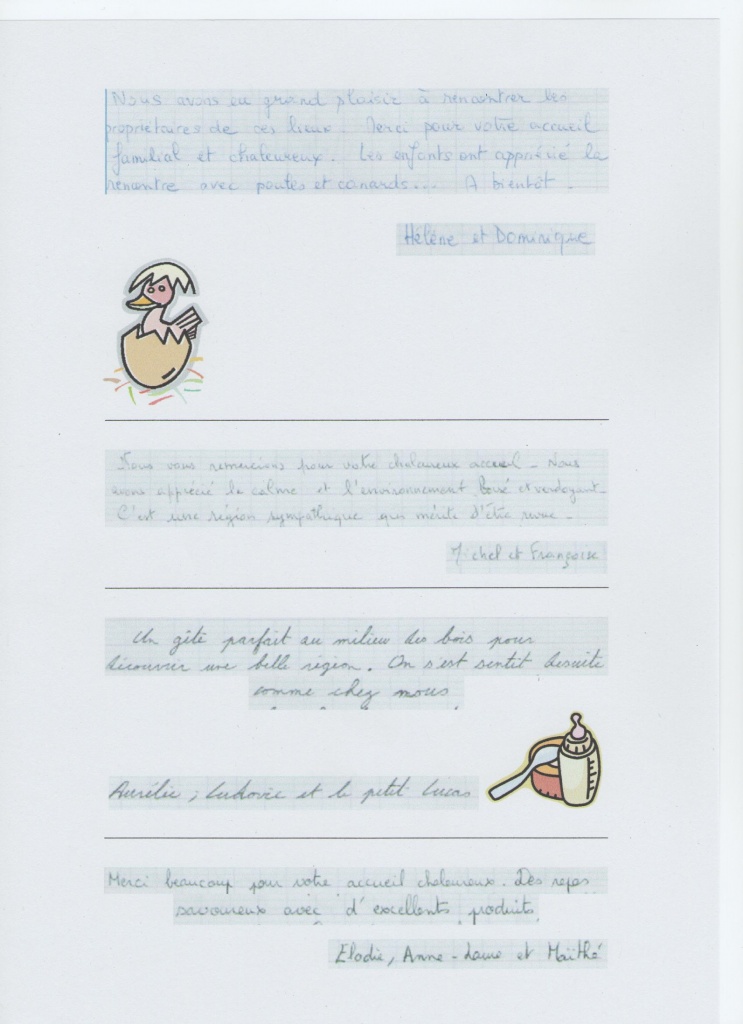 Nous avons eu grand plaisir à rencontrer les
propriétaires de ces lieux. Merci pour votre accueil
familial et chaleureux. Les enfants ont apprécié la
rencontre avec poules et canards... A bientôt.
Hélène et Dominique
Nous vous remercions pour votre chaleureux accueil - Nous
avons apprécié le calme et l'environnement boisé et verdoyant -
C'est une région sympathique qui mérite d'être revue -
Michel et Françoise
Un gîte parfait au milieu des bois pour
découvrir une belle région. On s'est sentit desuite
comme chez nous
Aurélie, Ludovic et le petit Lucas
Merci beaucoup pour votre accueil chaleureux. Des repas
savoureux avec d'excellents produits
Elodie, Anne-Laure et Maïthé